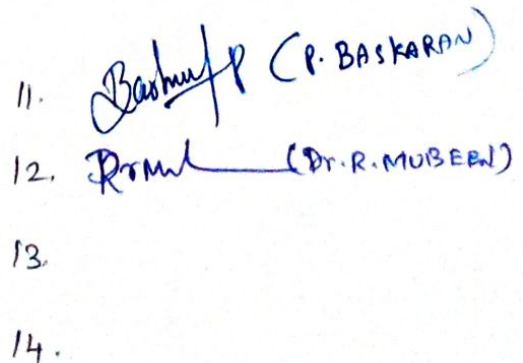 11. (P. BASKARAN)
12. (Dr. R. MUBEEN)
13.
14.